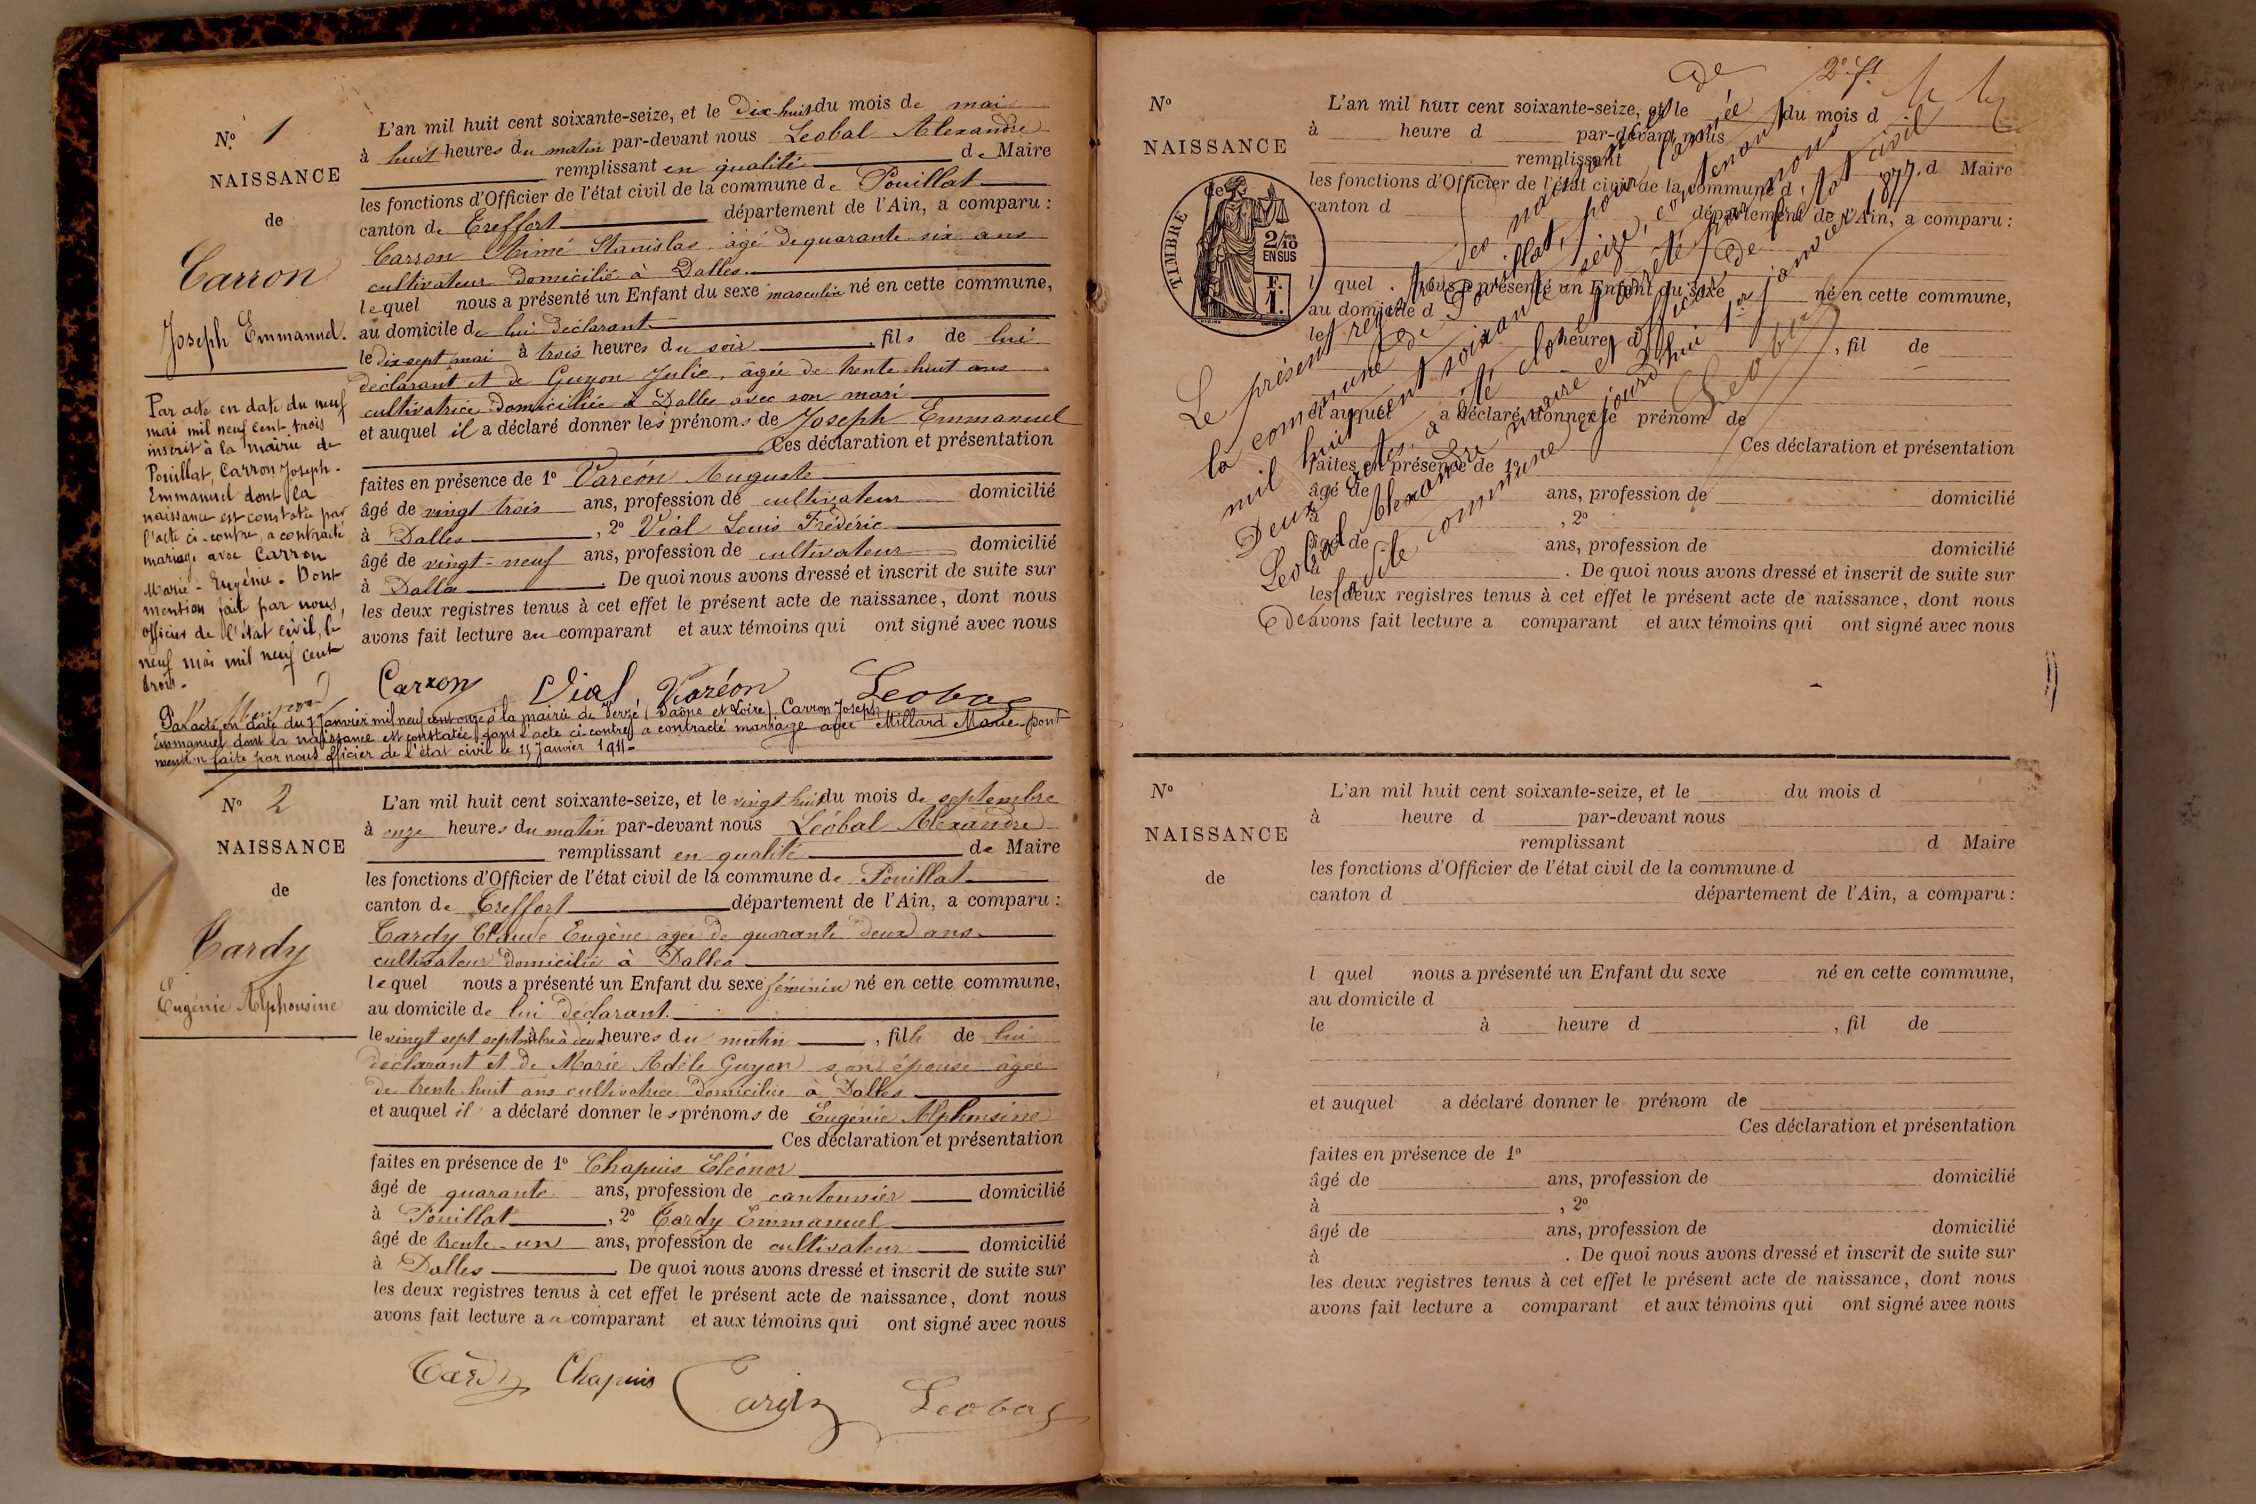 N° 1
NAISSANCE
de
Carron
Joseph Emmanuel.
Par acte en date du neuf
mai mil neuf cent trois
inscrit à la mairie de
Pouillat, Carron Joseph-
Emmanuel dont la
naissance est constatée par
l'acte ci-contre, a contracté
mariage avec Carron
Marie-Eugénie. Dont
mention faite par nous,
officier de l'état civil, le
neuf mai mil neuf cent
trois.
L'an mil huit cent soixante-seize, et le dix-huit du mois de mai
à huit heures du matin par-devant nous Leobal Alexandre
remplissant en qualité de Maire
les fonctions d'Officier de l'état civil de la commune de Pouillat
canton de Treffort département de l'Ain, a comparu :
Carron Aimé Stanislas âgé de quarante six ans
cultivateur domicilié à Dalles
lequel nous a présenté un Enfant du sexe masculin né en cette commune,
au domicile de lui déclarant
le dix-sept mai à trois heures du soir, fils de lui
déclarant et de Guyon Julie, agée de trente huit ans
cultivatrice domiciliée à Dalles avec son mari
et auquel il a déclaré donner les prénoms de Joseph Emmanuel
Ces déclaration et présentation
faites en présence de 1° Varéon Auguste
âgé de vingt trois ans, profession de cultivateur domicilié
à Dalles, 2° Vial Louis Frédéric
âgé de vingt-neuf ans, profession de cultivateur domicilié
à Dalles. De quoi nous avons dressé et inscrit de suite sur
les deux registres tenus à cet effet le présent acte de naissance, dont nous
avons fait lecture au comparant et aux témoins qui ont signé avec nous
Carron Vial Varéon Leobal
Par acte en date du 7 Janvier mil neuf cent onze, à la mairie de Verzé (Saône et Loire) Carron Joseph
Emmanuel dont la naissance est constatée dans l'acte ci-contre, a contracté mariage avec Millard Marie. Dont
mention faite par nous officier de l'état civil le 15 Janvier 1911.
N° 2
NAISSANCE
de
Tardy
Eugénie Alphonsine
L'an mil huit cent soixante-seize, et le vingt huit du mois de septembre
à onze heures du matin par-devant nous Léobal Alexandre
remplissant en qualité de Maire
les fonctions d'Officier de l'état civil de la commune de Pouillat
canton de Treffort département de l'Ain, a comparu :
Tardy Claude Eugène âgé de quarante deux ans
cultivateur domicilié à Dalles
lequel nous a présenté un Enfant du sexe féminin né en cette commune,
au domicile de lui déclarant
le vingt sept septembre à deux heures du matin, fille de lui
déclarant et de Marie Adèle Guyon son épouse âgée
de trente huit ans cultivatrice domiciliée à Dalles
et auquel il a déclaré donner les prénoms de Eugénie Alphonsine
Ces déclaration et présentation
faites en présence de 1° Chapuis Eléonor
âgé de quarante ans, profession de cantonnier domicilié
à Pouillat, 2° Tardy Emmanuel
âgé de trente-un ans, profession de cultivateur domicilié
à Dalles. De quoi nous avons dressé et inscrit de suite sur
les deux registres tenus à cet effet le présent acte de naissance, dont nous
avons fait lecture au comparant et aux témoins qui ont signé avec nous
Tardy Chapuis Tardy Leobal
2e ft
N°
NAISSANCE
de
TIMBRE
2/10 EN SUS
F. 1.
L'an mil huit cent soixante-seize, et le du mois d
à heure d par-devant nous
remplissant d Maire
les fonctions d'Officier de l'état civil de la commune d
canton d département de l'Ain, a comparu :
l quel nous a présenté un Enfant du sexe né en cette commune,
au domicile d
le à heure d, fil de
et auquel a déclaré donner le prénom de
Ces déclaration et présentation
faites en présence de 1°
âgé de ans, profession de domicilié
à , 2°
âgé de ans, profession de domicilié
à . De quoi nous avons dressé et inscrit de suite sur
les deux registres tenus à cet effet le présent acte de naissance, dont nous
avons fait lecture a comparant et aux témoins qui ont signé avec nous
Le présent registre des naissances de
la commune de Pouillat, pour l'année
mil huit cent soixante seize, contenant
Deux actes, a été clos et arrêté par nous
Leobal Alexandre maire et officier de l'état civil
de ladite commune aujourd'hui 1er janvier 1877.
Leobal
N°
NAISSANCE
de
L'an mil huit cent soixante-seize, et le du mois d
à heure d par-devant nous
remplissant d Maire
les fonctions d'Officier de l'état civil de la commune d
canton d département de l'Ain, a comparu :
l quel nous a présenté un Enfant du sexe né en cette commune,
au domicile d
le à heure d , fil de
et auquel a déclaré donner le prénom de
Ces déclaration et présentation
faites en présence de 1°
âgé de ans, profession de domicilié
à , 2°
âgé de ans, profession de domicilié
à . De quoi nous avons dressé et inscrit de suite sur
les deux registres tenus à cet effet le présent acte de naissance, dont nous
avons fait lecture a comparant et aux témoins qui ont signé avec nous